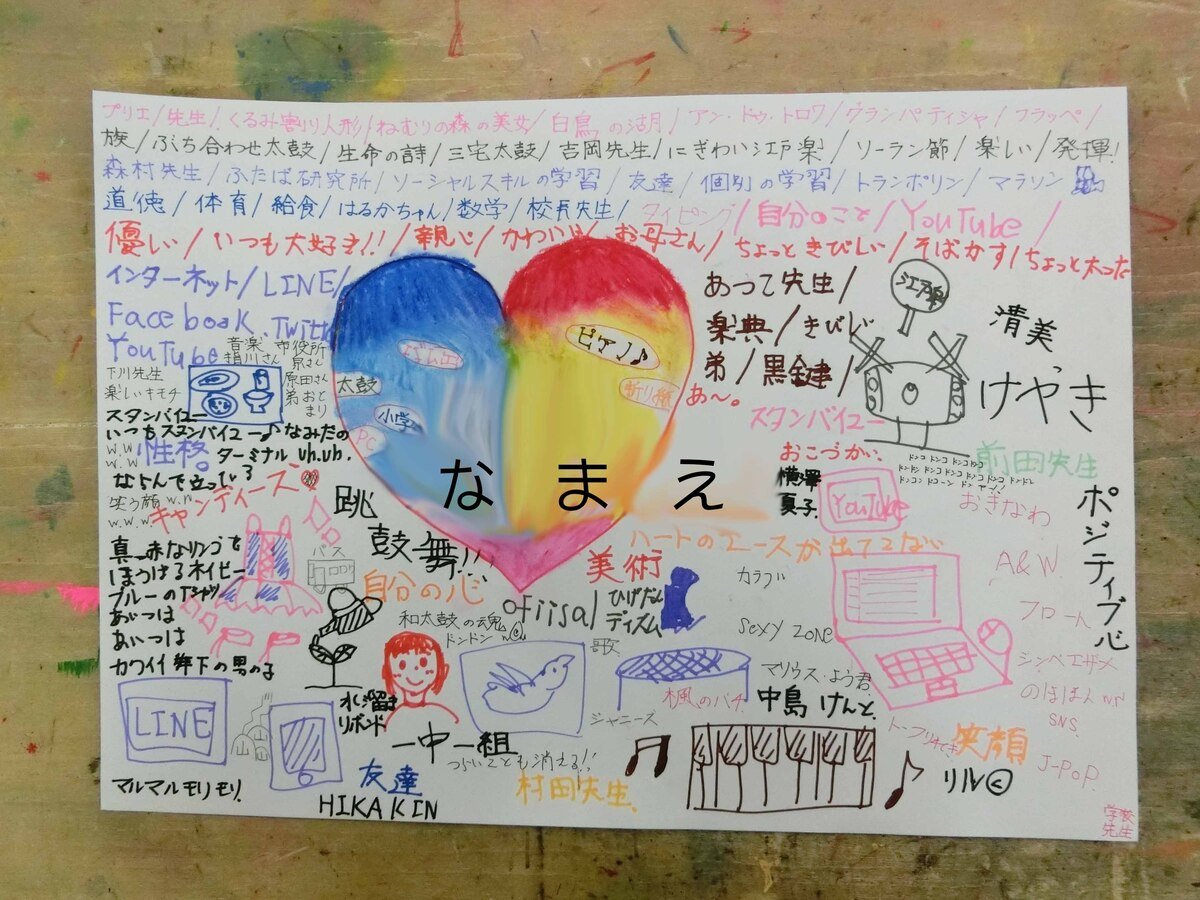 プリエ/先生/くるみ割り人形/ねむりの森の美女/白鳥の湖/アン・ドゥ・トロワ/グランパティシャ/フラッペ/
族/ぶち合わせ太鼓/生命の詩/三宅太鼓/吉岡先生/にぎわい江戸楽/ソーラン節/楽しい/発揮!
森村先生/ふたば研究所/ソーシャルスキルの学習/友達/個別の学習/トランポリン/マラソン
道徳/体育/給食/はるかちゃん/数学/校長先生/タイピング/自分のこと/YouTube/
優しい/いつも大好き!!/親心/かわいい/お母さん/ちょっときびしい/そばかす/ちょっと太った
インターネット/LINE/
Faceboak.Twitt
YouTube
音楽
市役所
下川先生
楽しいキモチ
原田さん
弟
スタンバイユー
いつもスタンバイユー♪なみだの
w.w
w.w
性格。
ターミナル uh.uh.
ならんで立っている
笑う顔w.w
w.w.w
キャンディーズ
真赤なリンゴを
ほうばるネイビー
ブルーのTシャツ
あいつは
あいつは
カワイイ年下の男の子
バス
太鼓
小学
PC
ピアノ♪
なまえ
跳
鼓舞!!
自分の心
和太鼓の云鬼
ドンドン
あって先生/
楽典/きびし
弟/黒鍵/
あ〜。
スタンバイユー
おこづかい、
横澤
夏子
YouTube
清美
けやき
ドンコ ドンコ ドンコ ドンコ
前田先生
おきなわ
ポジティブ心
ハートのエースが出てこない
美術
ofiisal
ひげだん
ディズム
カラフル
sexy zone
歌
マリウス・よう君
中島けんと。
楓のバチ
ジャニーズ
A&W
フローん
シンペエザメ
のほほん
SNS.
J-POP
笑顔
リル
LINE
水溜り
リボンド
一中一組
つらいことも消える!!
マルマルモリモリ.
友達
HIKAKIN
村田先生.
学校
先生